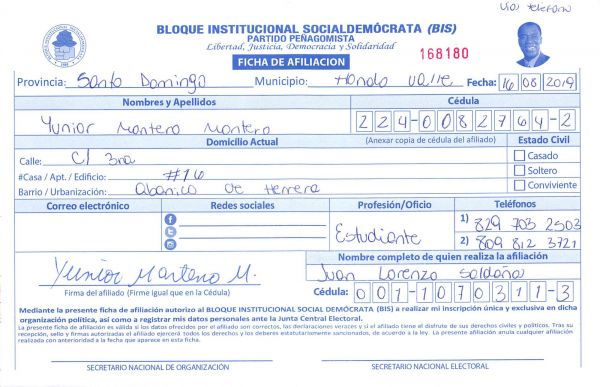 Vía telefono
BLOQUE INSTITUCIONAL SOCIALDEMÓCRATA (BIS)
PARTIDO PEÑAGOMISTA
Libertad, Justicia, Democracia y Solidaridad
168180
FICHA DE AFILIACION
Provincia: Santo Domingo Municipio: Hondo Valle Fecha: 16 08 2019
Nombres y Apellidos Cédula
Yunior Montero Montero 224-0082764-2
Domicilio Actual (Anexar copia de cédula del afiliado) Estado Civil
Calle: C/ 3ra Casado
#Casa / Apt. / Edificio: #16 Soltero
Barrio / Urbanización: Abanico De Herrera Conviviente
Correo electrónico Redes sociales Profesión/Oficio Teléfonos
1) 829 703 2503
Estudiante 2) 809 812 3721
Nombre completo de quien realiza la afiliación
Yunior Montero M. Juan Lorenzo Saldaña
Firma del afiliado (Firme igual que en la Cédula) Cédula: 001-1070311-3
Mediante la presente ficha de afiliación autorizo al BLOQUE INSTITUCIONAL SOCIAL DEMÓCRATA (BIS) a realizar mi inscripción única y exclusiva en dicha
organización política, así como a registrar mis datos personales ante la Junta Central Electoral.
La presente ficha de afiliación es válida si los datos ofrecidos por el afiliado son correctos, las declaraciones veraces y si el afiliado tiene el disfrute de sus derechos civiles y políticos. Tras su
recepción, sello y firmas autorizadas el afiliado ejercerá todos los derechos y los deberes estatutariamente sancionados, de acuerdo a la ley. La presente afiliación anula cualquier afiliación
realizada con anterioridad a la fecha que aparece en esta ficha.
SECRETARIO NACIONAL DE ORGANIZACIÓN SECRETARIO NACIONAL ELECTORAL